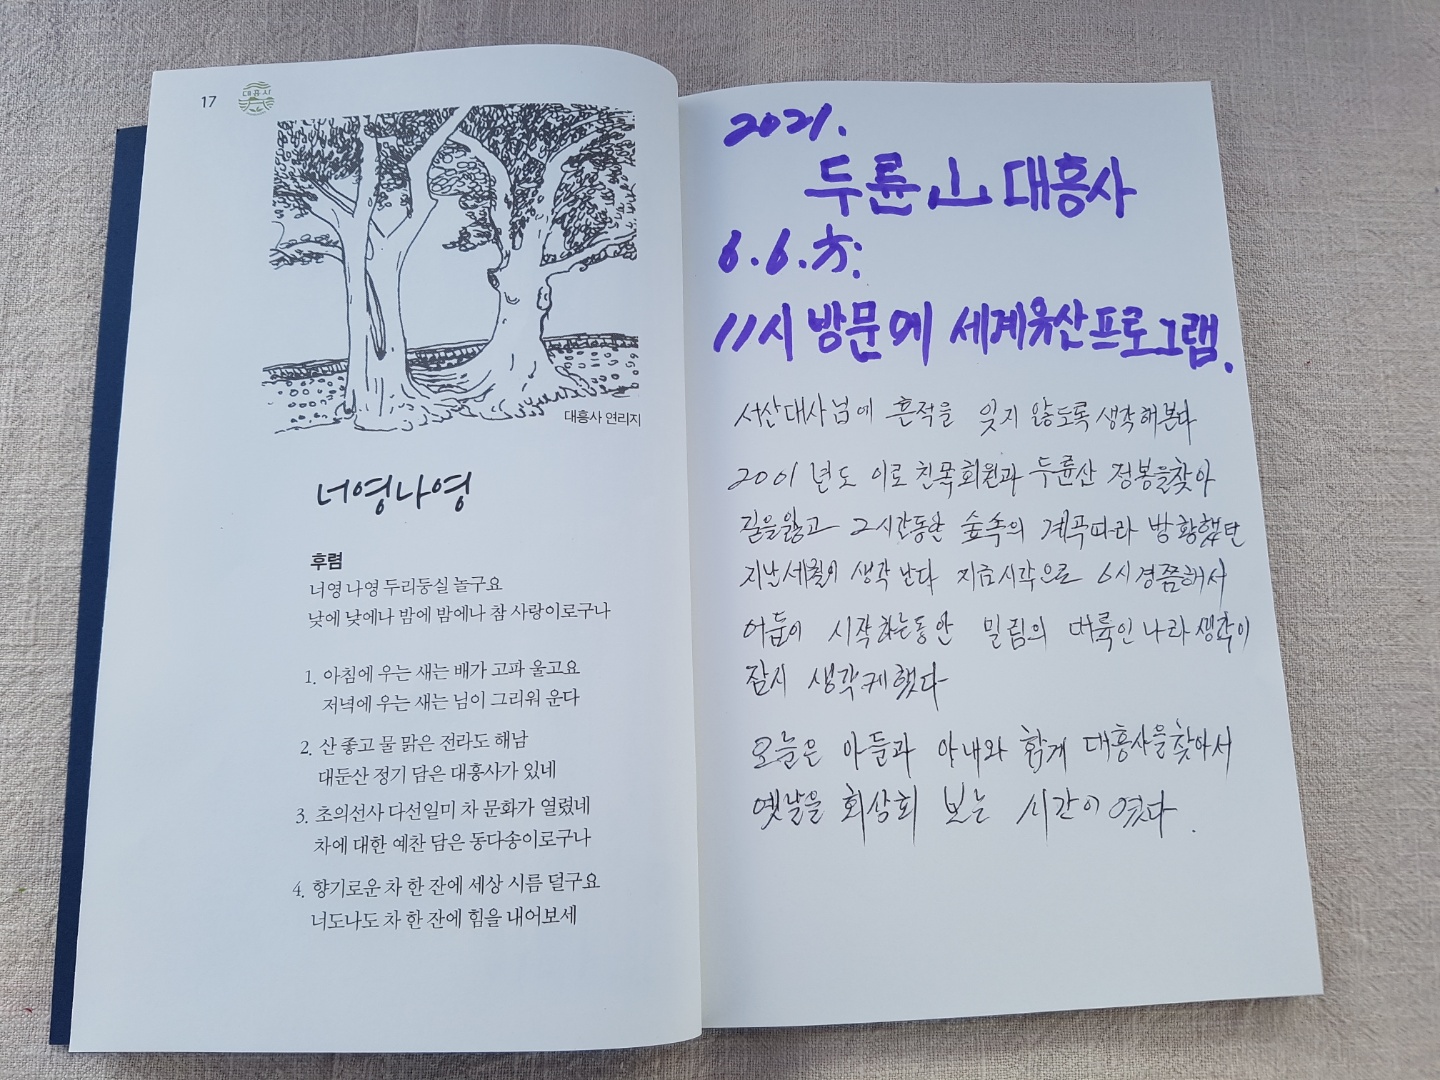 17
대흥사
대흥사 연리지
너영나영
후렴
너영 나영 두리둥실 놀구요
낮에 낮에나 밤에 밤에나 참 사랑이로구나
1. 아침에 우는 새는 배가 고파 울고요
저녁에 우는 새는 님이 그리워 운다
2. 산 좋고 물 맑은 전라도 해남
대둔산 정기 담은 대흥사가 있네
3. 초의선사 다선일미 차 문화가 열렸네
차에 대한 예찬 담은 동다송이로구나
4. 향기로운 차 한 잔에 세상 시름 덜구요
너도나도 차 한 잔에 힘을 내어보세
2021.
두륜山 대흥사
6.6.
11시 방문에 세계유산프로그램.
서산대사님에 흔적을 잊지 않도록 생각해본다
2001년도 이로 친목회원과 두륜산 정봉을찾아
길을잃고 2시간동안 숲속의 계곡따라 방황했던
지난세월이 생각난다 지금시각으로 6시경쯤해서
어둠이 시작하는동안 밀림의 생각이
잠시 생각케했다
오늘은 아들과 아내와 함게 대흥사을찾아서
옛날을 회상회 보는 시간이였다.